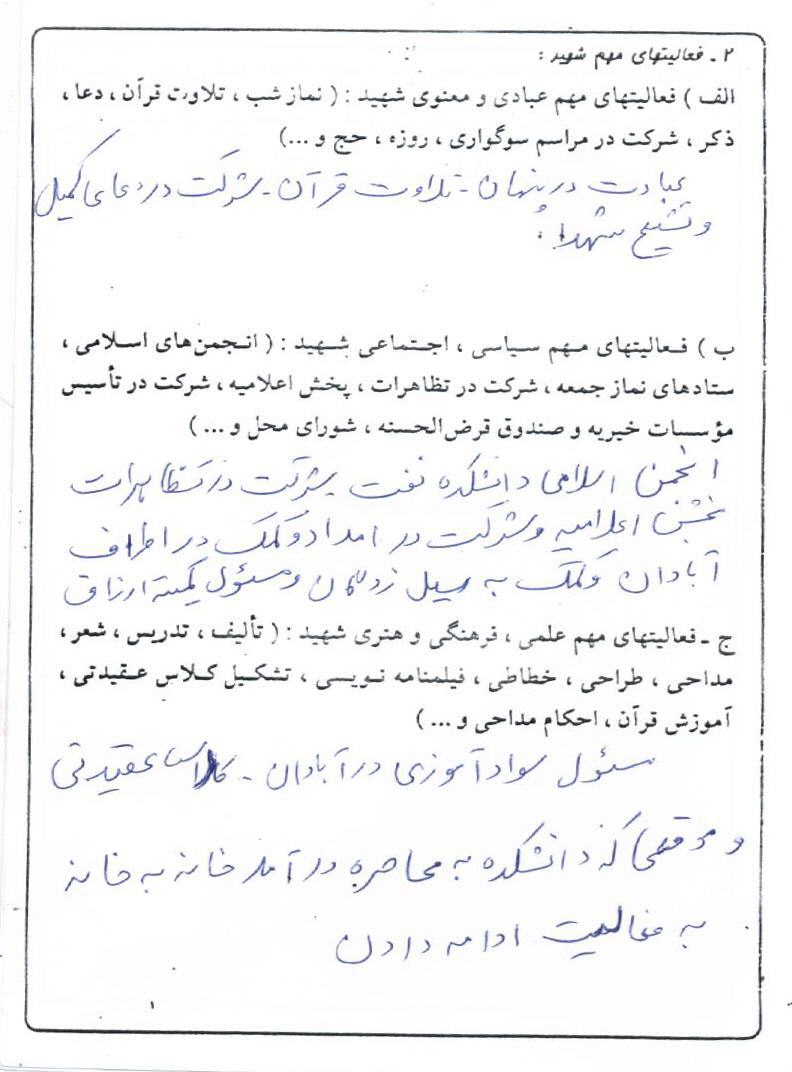 ۲ ـ فعالیتهای مهم شهید :
الف ) فعالیتهای مهم عبادی و معنوی شهید : ( نماز شب ، تلاوت قرآن ، دعا ،
ذکر ، شرکت در مراسم سوگواری ، روزه ، حج و ...)
عبادت در پنهان - تلاوت قرآن - شرکت در دعای کمیل
و تشیع شهدا .
ب ) فعالیتهای مهم سیاسی ، اجتماعی شهید : ( انجمن‌های اسلامی ،
ستادهای نماز جمعه ، شرکت در تظاهرات ، پخش اعلامیه ، شرکت در تأسیس
مؤسسات خیریه و صندوق قرض‌الحسنه ، شورای محل و ... )
انجمن اسلامی دانشکده نفت شرکت در تظاهرات
پخش اعلامیه و شرکت در امداد و کمک در اطراف
آبادان و کمک به سیل زدگان و مسئول کمیته ارزاق
ج ـ فعالیتهای مهم علمی ، فرهنگی و هنری شهید : ( تألیف ، تدریس ، شعر ،
مداحی ، طراحی ، خطاطی ، فیلمنامه نویسی ، تشکیل کلاس عقیدتی ،
آموزش قرآن ، احکام مداحی و ... )
مسئول سواد آموزی در آبادان - کلاس عقیدتی
و موقعی که دانشکده به محاصره در آمد خانه به خانه
به فعالیت ادامه دادن
۱